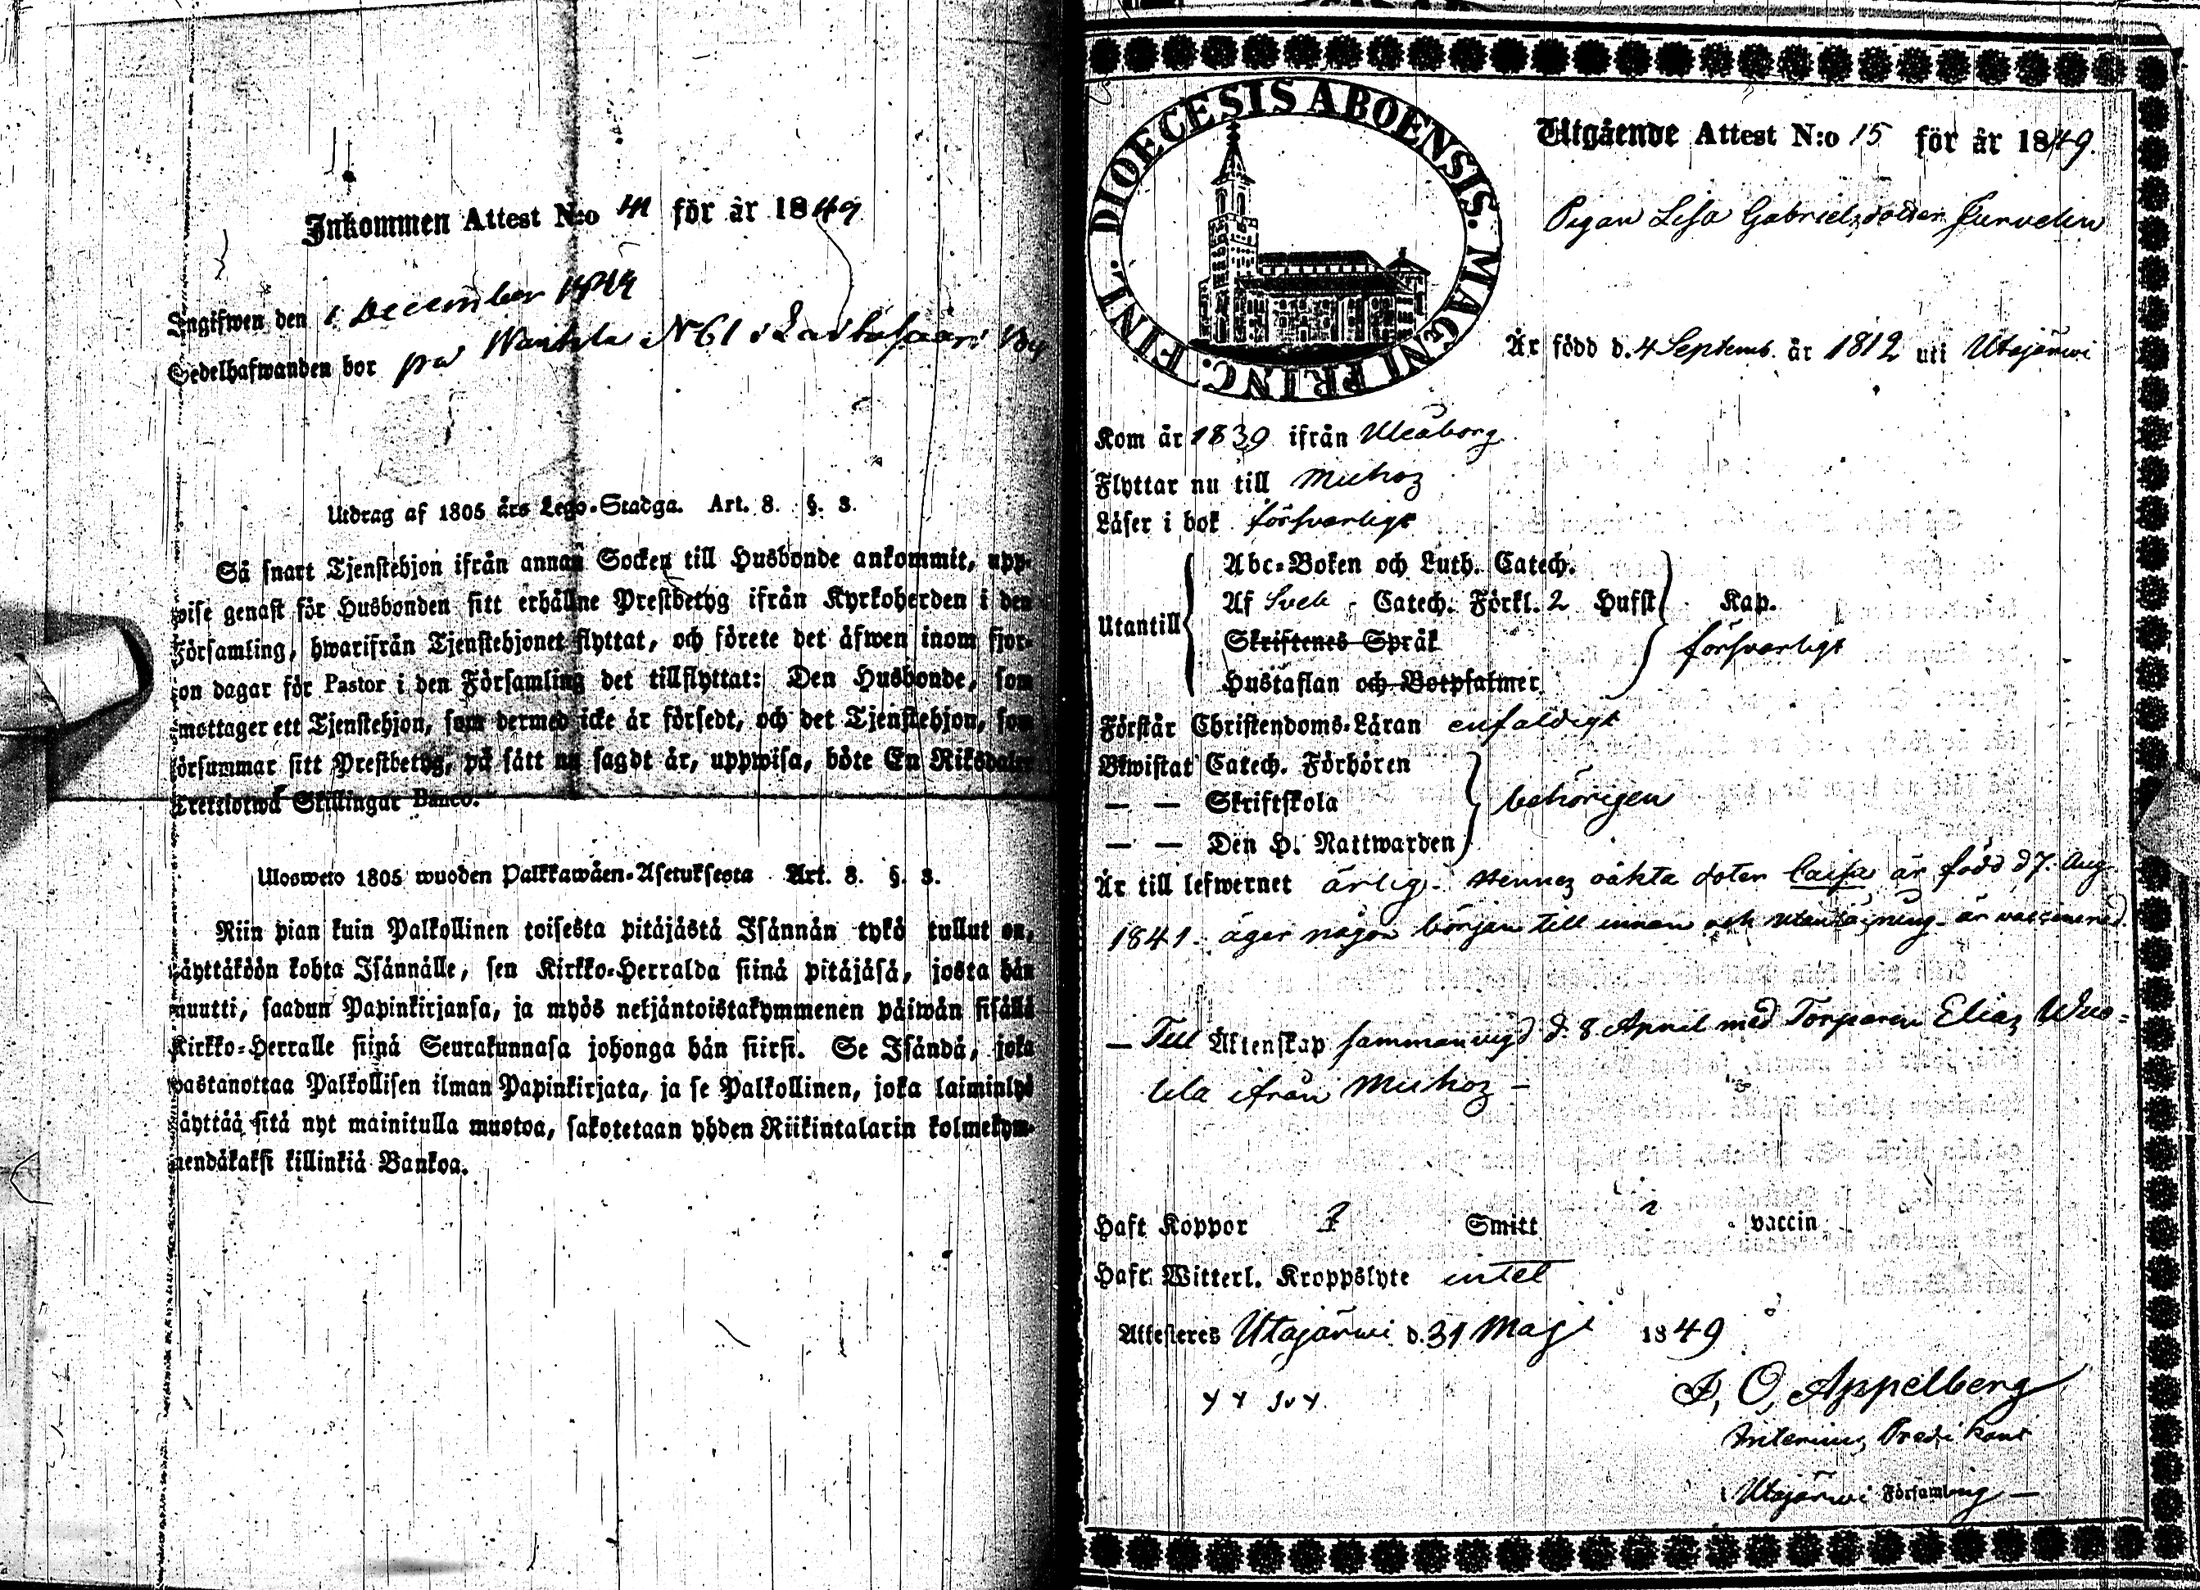 Inkommen Attest N:o 41 för år 1849
Ingifwen den 1 December 1849
Sedelhafwanden bor på N 61 i By
Utdrag af 1805 års Lego-Stadga. Art. 8. §. 3.
Så snart Tjenstehjon ifrån annan Socken till Husbonde ankommit, upp-
wise genast för Husbonden sitt erhållne Prestbetyg ifrån Kyrkoherden i den
Församling, hwarifrån Tjenstehjonet flyttat, och förete det äfwen inom fjor-
ton dagar för Pastor i den Församling det tillflyttat: Den Husbonde, som
emottager ett Tjenstehjon, som dermed icke är försedt, och det Tjenstehjon, som
försummar sitt Prestbetyg, på sätt nu sagdt är, uppwisa, böte En Riksdaler
Trettiotwå Skillingar Banco.
Ulosweto 1805 wuoden Palkkawäen-Asetuksesta Art. 8. §. 3.
Niin pian kuin Palkollinen toisesta pitäjästä Isännän tykö tullut on,
näyttäköön kohta Isännälle, sen Kirkko-Herralda siinä pitäjäsä, josta hän
muutti, saadun Papinkirjansa, ja myös neljäntoistakymmenen päiwän sisällä
Kirkko-Herralle siinä Seurakunnasa johonga hän siirsi. Se Isändä, joka
wastanottaa Palkollisen ilman Papinkirjata, ja se Palkollinen, joka laiminlyö
näyttää sitä nyt mainitulla muotoa, sakotetaan yhden Riikintalarin kolmekym-
mendäkaksi killinkiä Bankoa.
DIOECESIS ABOENSIS. MAGNI PRINC. FINL.
Utgående Attest N:o 15 för år 1849.
Pigan Lisa Gabrielsdotter Jurvelin
Är född d. 4 Septemb. år 1812 uti Utajärwi
Kom år 1839 ifrån Uleåborg
Flyttar nu till Muhos
Läser i bok försvarligt
Utantill
Abc-Boken och Luth. Catech.
Af Sveb. Catech. Förkl. 2 Hufst Kap.
Skriftenes Språk
Hustaflan och Botpsalmer
försvarligt
Förstår Christendoms-Läran enfaldigt
Bewistat Catech. Förhören
— — Skriftskola
— — Den H. Nattwarden
behörigen
Är till lefwernet ärlig. Hennes oäkta doter Caisa är född d 7. Aug
1841. äger någon början till innan och utanläsning. är vaccinerad.
— Till Äktenskap sammanvigd d. 8 April med Torparen Elias Wuo-
lela ifrån Muhos —
Haft Koppor ? Smitt vaccin
Haft Witterl. Kroppslyte intet
Attesteres Utajärwi d. 31 Maji 1849
A, O, Appelberg
Interims Predikant
i Utajärwi Församling —